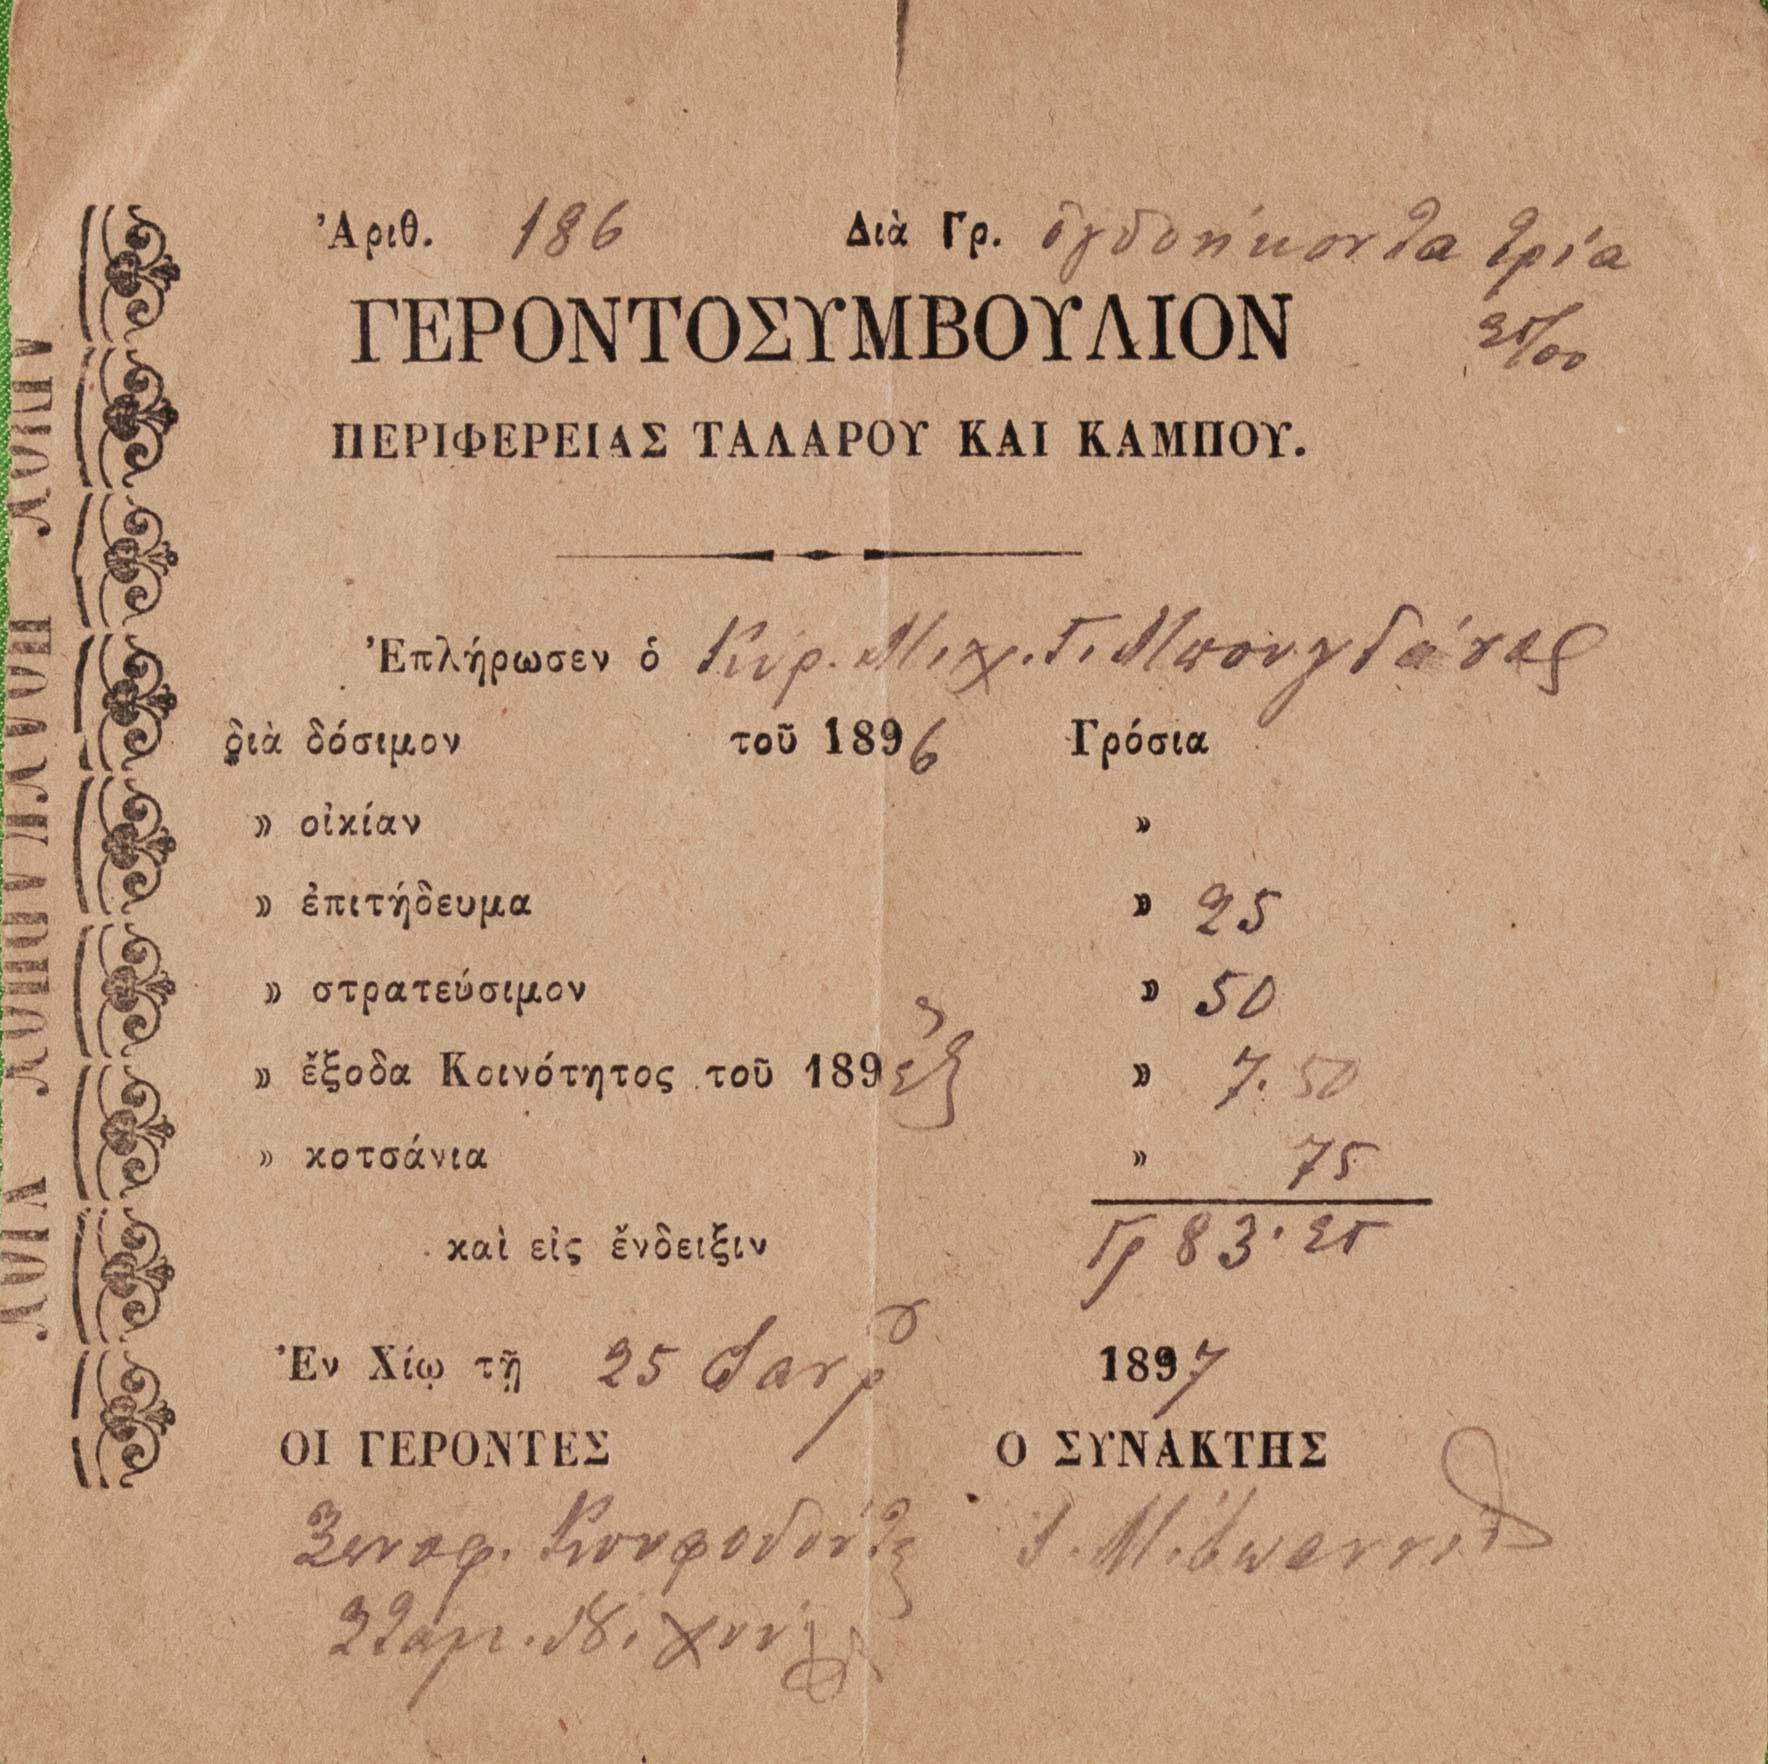 Ἀριθ. 186 Διὰ Γρ. ὀγδοήκοντα τρία
25/00
ΓΕΡΟΝΤΟΣΥΜΒΟΥΛΙΟΝ
ΠΕΡΙΦΕΡΕΙΑΣ ΤΑΛΑΡΟΥ ΚΑΙ ΚΑΜΠΟΥ.
Ἐπλήρωσεν ὁ Κύρ. Μιχ. Γ. Μπουγδάνος
διὰ δόσιμον τοῦ 1896 Γρόσια
» οἰκίαν »
» ἐπιτήδευμα » 25
» στρατεύσιμον » 50
» ἔξοδα Κοινότητος τοῦ 189 ἕξ » 7.50
» κοτσάνια » 75
καὶ εἰς ἔνδειξιν Γρ 83.25
Ἐν Χίῳ τῇ 25 Ἰανρ 1897
ΟΙ ΓΕΡΟΝΤΕΣ Ο ΣΥΝΑΚΤΗΣ
Ξενοφ.
Σταμ.